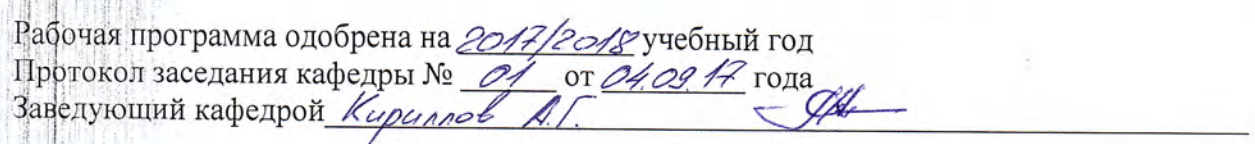 Рабочая программа одобрена на 2017/2018 учебный год
Протокол заседания кафедры № 01 от 04.09.17 года
Заведующий кафедрой Кириллов А.Г.